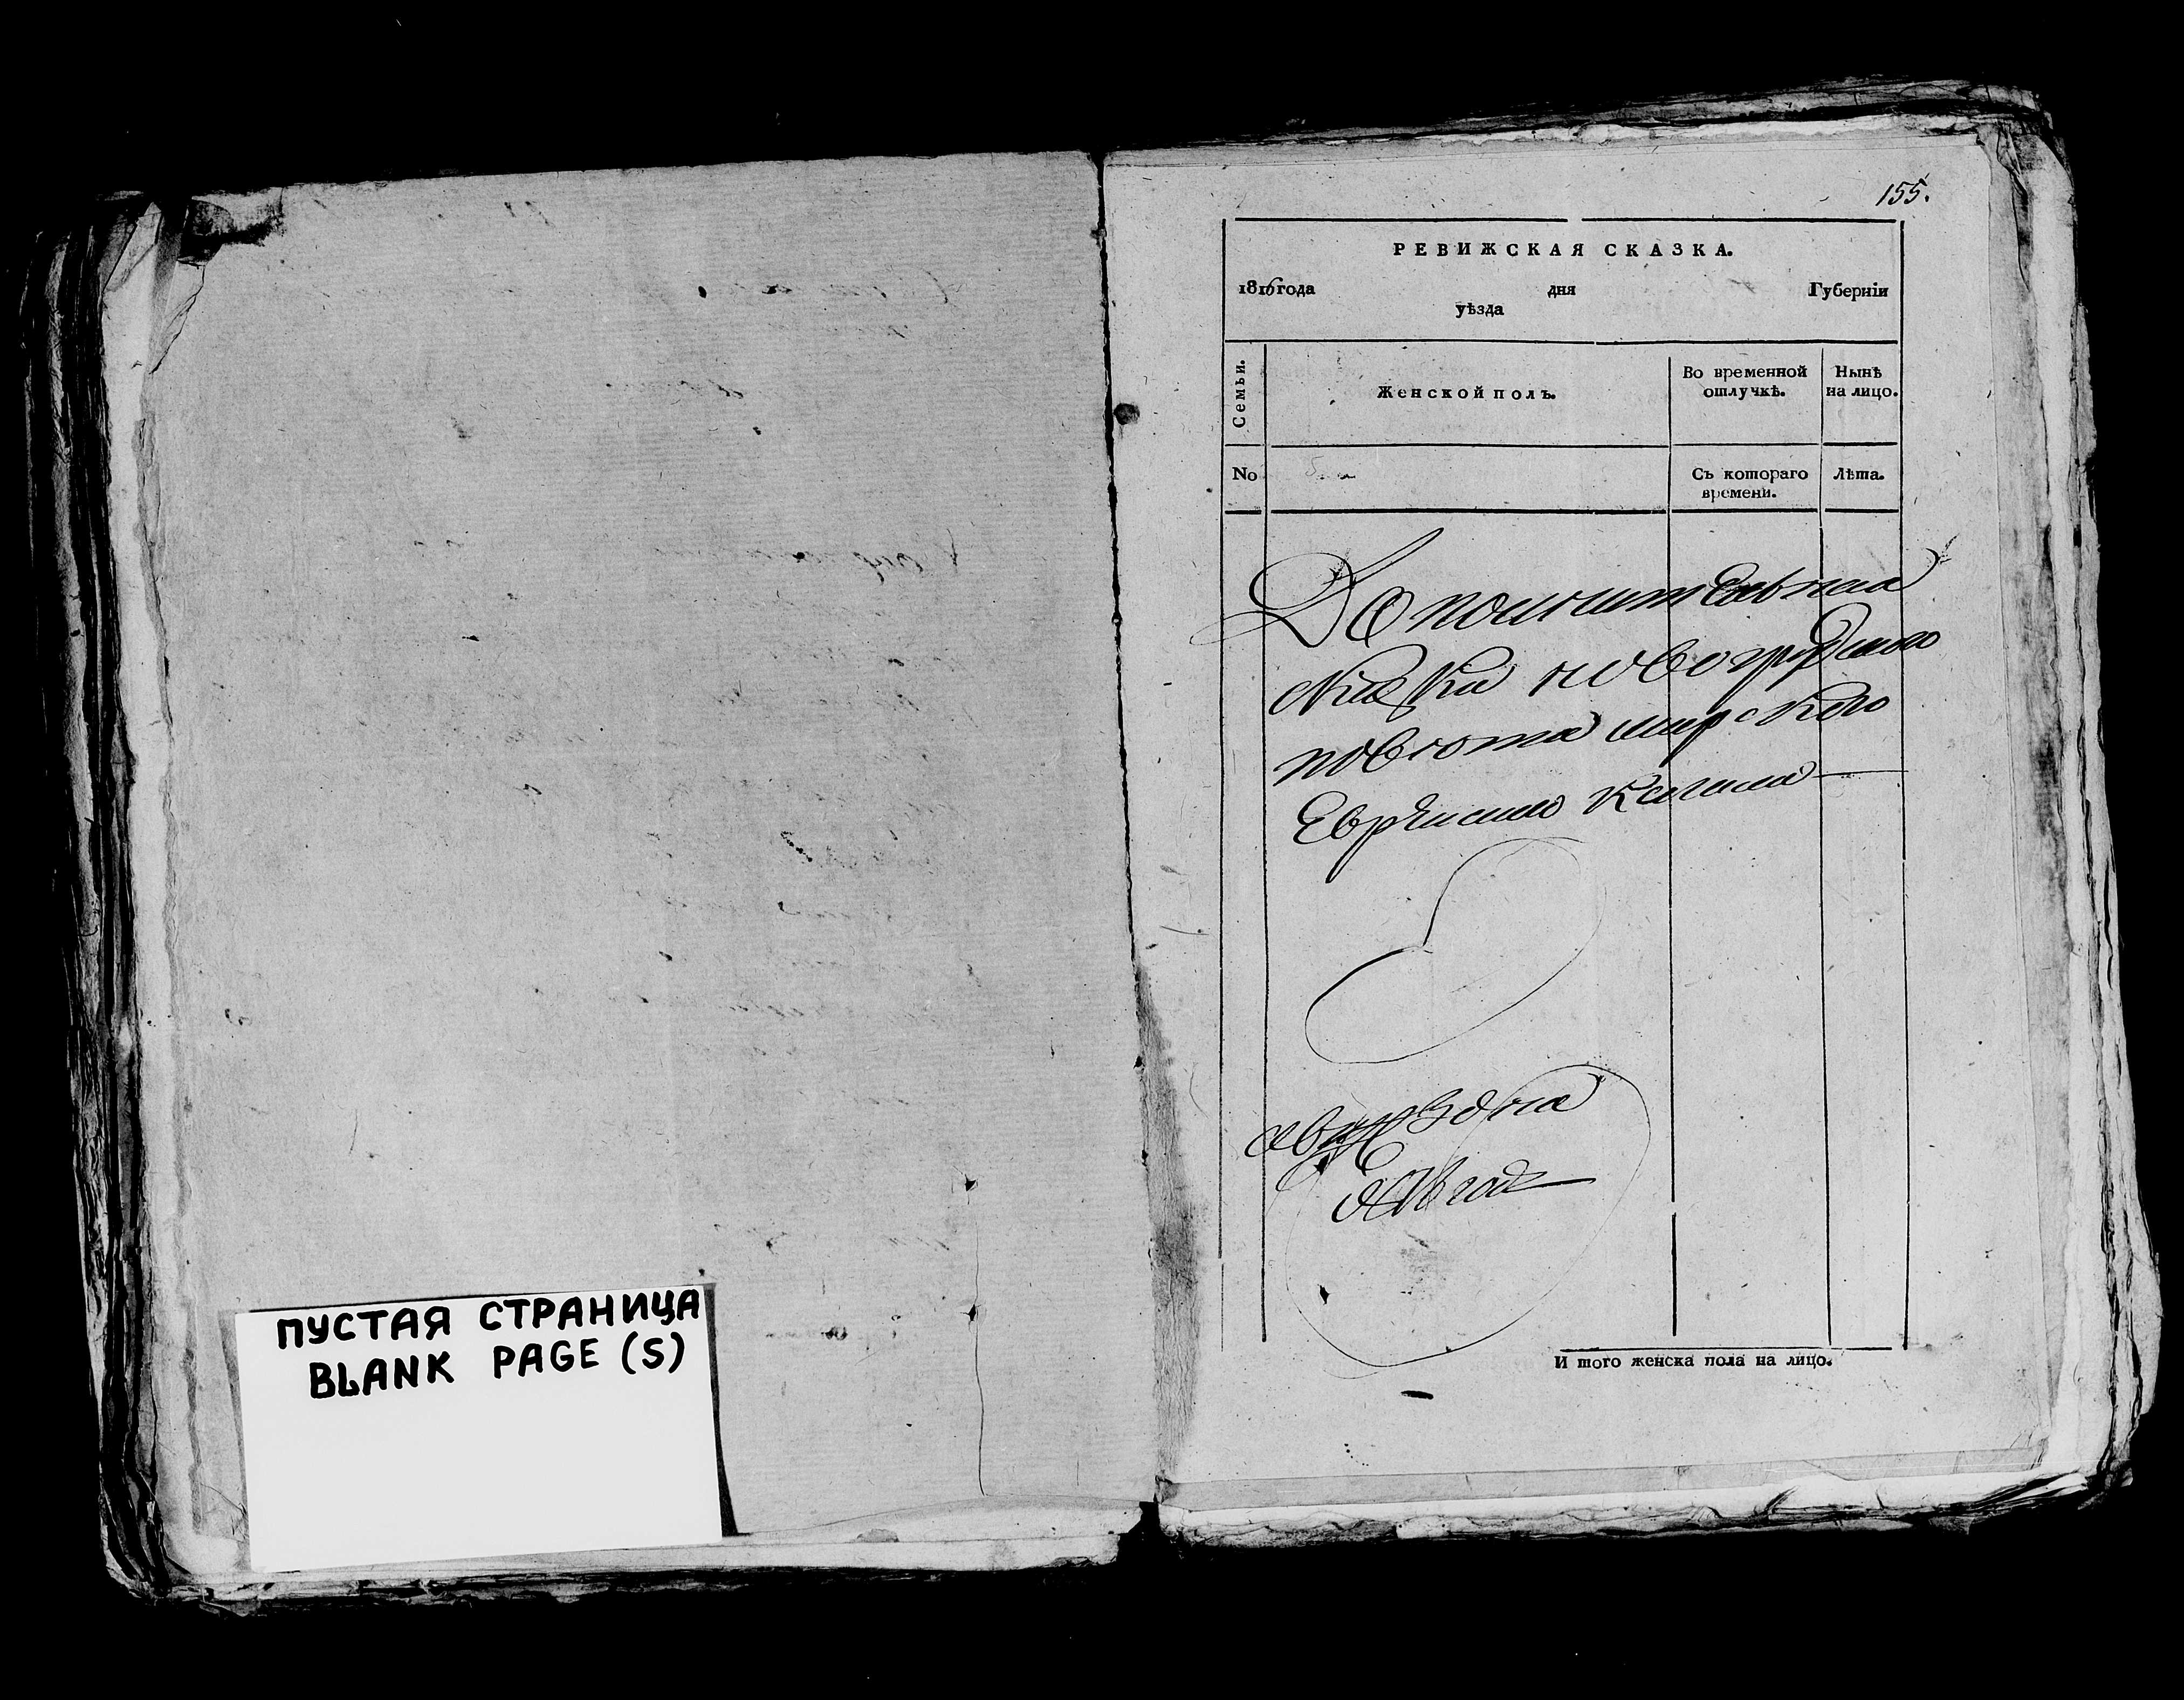 155.
РЕВИЖСКАЯ СКАЗКА.
1816 года дня Губерніи
уѣзда
Семьи.
Женской полъ.
Во временной отлучкѣ.
Нынѣ на лицо.
No
Съ котораго времени.
Лѣта.
Дополнительная
новогрудского
повѣта мирского
Еврейского кагала
года
И того женска пола на лицо.
ПУСТАЯ СТРАНИЦА
BLANK PAGE (S)